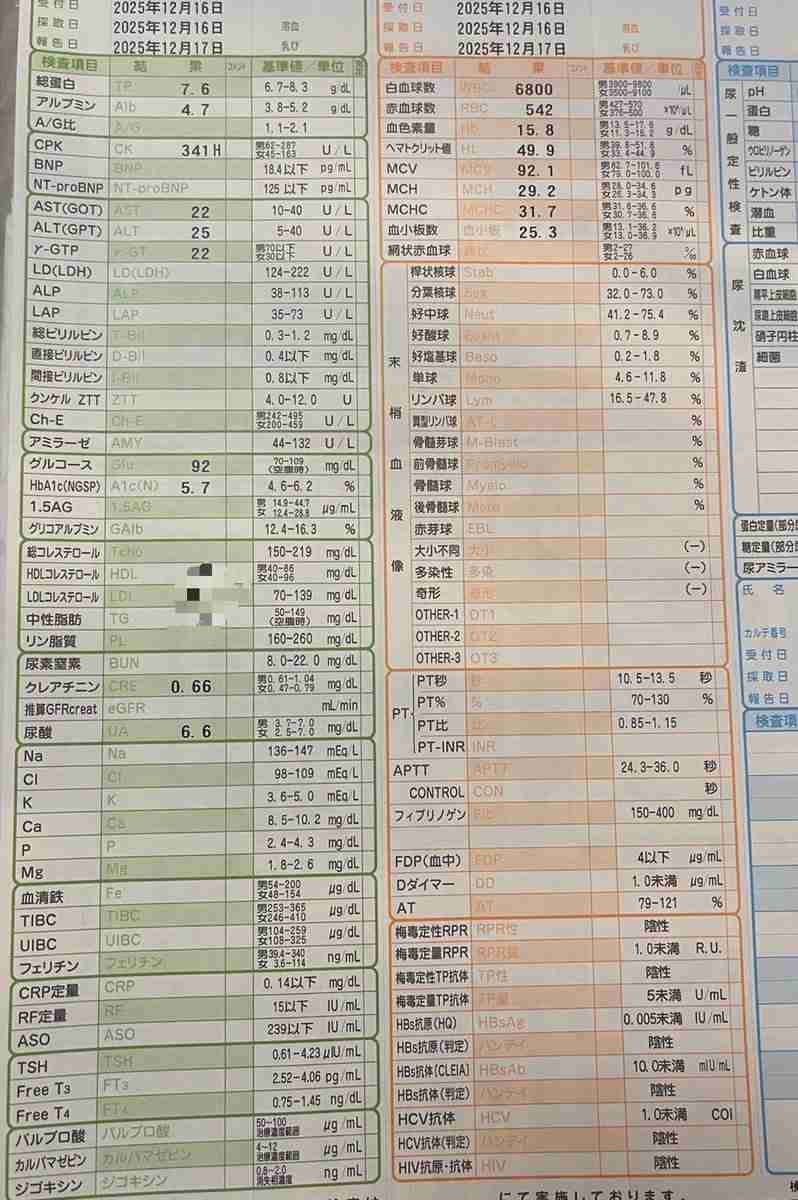 受付日 2025年12月16日
採取日 2025年12月16日 溶血
報告日 2025年12月17日 乳び
検査項目 結果 コメント 基準値/単位
総蛋白 TP 7.6 6.7-8.3 g/dL
アルブミン Alb 4.7 3.8-5.2 g/dL
A/G比 A/G 1.1-2.1
CPK CK 341H 男62-287 女45-163 U/L
BNP BNP 18.4以下 pg/mL
NT-proBNP NT-proBNP 125以下 pg/mL
AST(GOT) AST 22 10-40 U/L
ALT(GPT) ALT 25 5-40 U/L
γ-GTP γ-GT 22 男70以下 女30以下 U/L
LD(LDH) LD(LDH) 124-222 U/L
ALP ALP 38-113 U/L
LAP LAP 35-73 U/L
総ビリルビン T-Bil 0.3-1.2 mg/dL
直接ビリルビン D-Bil 0.4以下 mg/dL
間接ビリルビン I-Bil 0.8以下 mg/dL
クンケル ZTT ZTT 4.0-12.0 U
Ch-E Ch-E 男242-495 女200-459 U/L
アミラーゼ AMY 44-132 U/L
グルコース Glu 92 70-109 (空腹時) mg/dL
HbA1c(NGSP) A1c(N) 5.7 4.6-6.2 %
1.5AG 1.5AG 男 14.9-44.7 女 12.4-28.8 μg/mL
グリコアルブミン GAlb 12.4-16.3 %
総コレステロール Tcho 150-219 mg/dL
HDLコレステロール HDL 男40-86 女40-96 mg/dL
LDLコレステロール LDL 70-139 mg/dL
中性脂肪 TG 50-149 (空腹時) mg/dL
リン脂質 PL 160-260 mg/dL
尿素窒素 BUN 8.0-22.0 mg/dL
クレアチニン CRE 0.66 男0.61-1.04 女0.47-0.79 mg/dL
推算GFRcreat eGFR mL/min
尿酸 UA 6.6 男 3.7-7.0 女 2.5-7.0 mg/dL
Na Na 136-147 mEq/L
Cl Cl 98-109 mEq/L
K K 3.6-5.0 mEq/L
Ca Ca 8.5-10.2 mg/dL
P P 2.4-4.3 mg/dL
Mg Mg 1.8-2.6 mg/dL
血清鉄 Fe 男54-200 女48-154 μg/dL
TIBC TIBC 男253-365 女246-410 μg/dL
UIBC UIBC 男104-259 女108-325 μg/dL
フェリチン フェリチン 男39.4-340 女 3.6-114 ng/mL
CRP定量 CRP 0.14以下 mg/dL
RF定量 RF 15以下 IU/mL
ASO ASO 239以下 IU/mL
TSH TSH 0.61-4.23 μIU/mL
Free T3 FT3 2.52-4.06 pg/mL
Free T4 FT4 0.75-1.45 ng/dL
バルプロ酸 バルプロ酸 50-100 治療濃度範囲 μg/mL
カルバマゼピン カルバマゼピン 4-12 治療濃度範囲 μg/mL
ジゴキシン ジゴキシン 0.8-2.0 ng/mL
受付日 2025年12月16日
採取日 2025年12月16日 溶血
報告日 2025年12月17日 乳び
検査項目 結果 コメント 基準値/単位
白血球数 WBC 6800 男3900-9800 女3500-9100 /μL
赤血球数 RBC 542 男427-570 女376-500 ×10⁴/μL
血色素量 Hb 15.8 男13.5-17.6 女11.3-15.2 g/dL
ヘマトクリット値 Ht 49.9 男39.8-51.8 女33.4-44.9 %
MCV MCV 92.1 男82.7-101.6 女79.0-100.0 fL
MCH MCH 29.2 男28.0-34.6 女26.3-34.3 pg
MCHC MCHC 31.7 男31.6-36.6 女30.7-36.6 %
血小板数 血小板 25.3 男13.1-36.2 女13.0-36.9 ×10⁴/μL
網状赤血球 男2-27 女2-26 ‰
末梢血液像
桿状核球 Stab 0.0-6.0 %
分葉核球 Seg 32.0-73.0 %
好中球 Neut 41.2-75.4 %
好酸球 0.7-8.9 %
好塩基球 Baso 0.2-1.8 %
単球 Mono 4.6-11.8 %
リンパ球 Lym 16.5-47.8 %
異型リンパ球 AT-L %
骨髄芽球 M-Blast %
前骨髄球 Promyelo %
骨髄球 Myelo %
後骨髄球 %
赤芽球 EBL
大小不同 大小 (-)
多染性 多染 (-)
奇形 奇形 (-)
OTHER-1 OT1
OTHER-2 OT2
OTHER-3 OT3
PT
PT秒 秒 10.5-13.5 秒
PT% % 70-130 %
PT比 比 0.85-1.15
PT-INR INR
APTT APTT 24.3-36.0 秒
CONTROL CON 秒
フィブリノゲン Fib 150-400 mg/dL
FDP(血中) FDP 4以下 μg/mL
Dダイマー DD 1.0未満 μg/mL
AT AT 79-121 %
梅毒定性RPR RPR性 陰性
梅毒定量RPR RPR量 1.0未満 R.U.
梅毒定性TP抗体 TP性 陰性
梅毒定量TP抗体 TP量 5未満 U/mL
HBs抗原(HQ) HBsAg 0.005未満 IU/mL
HBs抗原(判定) ハンテイ 陰性
HBs抗体(CLEIA) HBsAb 10.0未満 mIU/mL
HBs抗体(判定) ハンテイ 陰性
HCV抗体 HCV 1.0未満 COI
HCV抗体(判定) ハンテイ 陰性
HIV抗原・抗体 HIV 陰性
にて実施しております。
受付日
採取日
報告日
検査項目
尿一般定性検査
pH
蛋白
糖
ウロビリノーゲン
ビリルビン
ケトン体
潜血
比重
尿沈渣
赤血球
白血球
扁平上皮細胞
尿路上皮細胞
硝子円柱
細菌
蛋白定量(部分
糖定量(部分
尿アミラー
氏名
カルテ番号
受付日
採取日
報告日
検査項